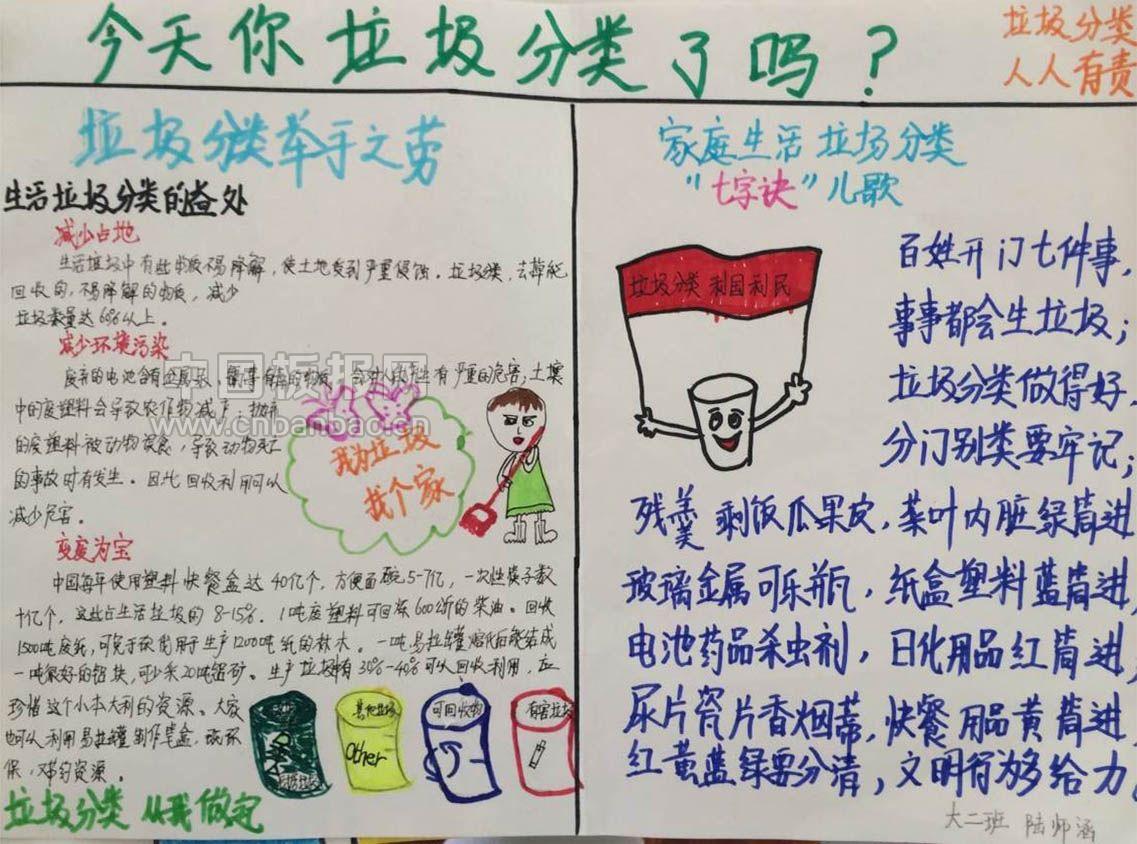 今天你垃圾分类了吗？
垃圾分类
人人有责
垃圾分类牵手之劳
生活垃圾分类的益处
减少占地
生活垃圾中有些物质不易降解，使土地受到严重侵蚀。垃圾分类，去掉能
回收的，不易降解的物质，减少
垃圾数量达60%以上。
减少环境污染
废弃的电池含有金属汞、镉等有毒的物质，会对人类产生有严重的危害，土壤
中的废塑料会导致农作物减产；抛弃
的废塑料被动物误食，导致动物死亡
的事故时有发生。因此回收利用可以
减少危害。
变废为宝
中国每年使用塑料快餐盒达40亿个，方便面碗5-7亿，一次性筷子数
十亿个，这些占生活垃圾的8-15%。1吨废塑料可回炼600公斤的柴油。回收
1500吨废纸，可免于砍伐用于生产1200吨纸的林木。一吨易拉罐熔化后能结成
一吨很好的铝块，可少采20吨铝矿。生产垃圾有30%-40%可以回收利用，应
珍惜这个小本大利的资源。大家
也可以利用易拉罐制作笔盒，既环
保，又节约资源。
垃圾分类 从我做起
我为垃圾
找个家
其他垃圾
Other
可回收物
有害垃圾
家庭生活垃圾分类
“七字诀”儿歌
垃圾分类 利国利民
百姓开门七件事，
事事都会生垃圾；
垃圾分类做得好，
分门别类要牢记；
残羹剩饭瓜果皮，菜叶内脏绿筒进
玻璃金属可乐瓶，纸盒塑料蓝筒进，
电池药品杀虫剂，日化用品红筒进，
尿片瓷片香烟蒂，快餐用品黄筒进，
红黄蓝绿要分清，文明行为多给力。
大二班 陆师涵
中国板报网
www.cnbanbao.cn